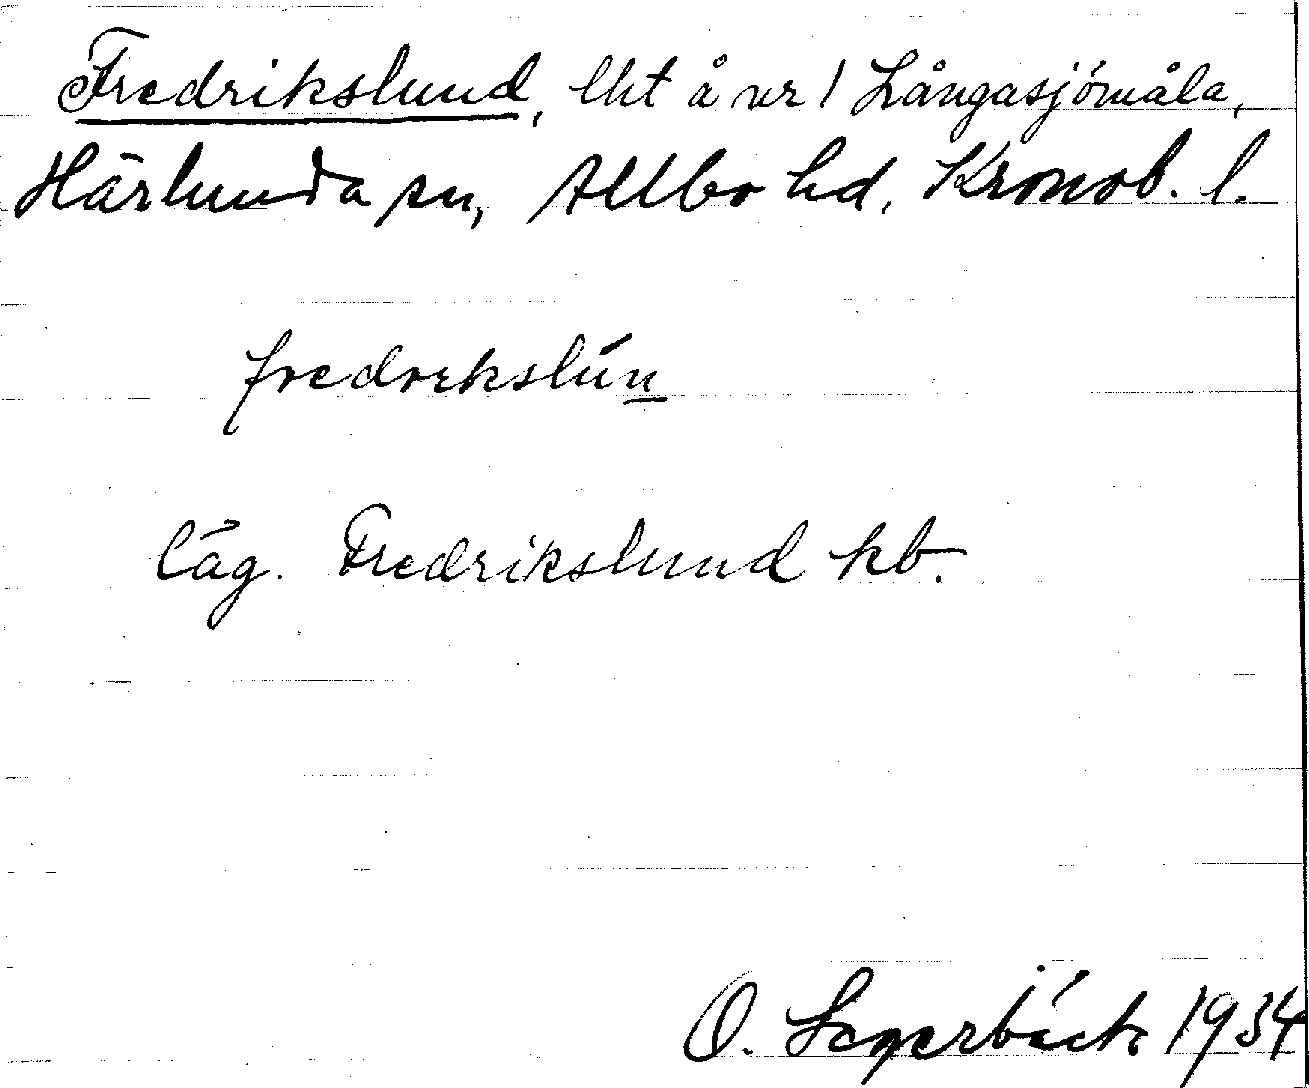 Fredrikslund, lht å nr 1 Långasjömåla,
Härlunda sn, Allbo hd, Kronob. l.
fredrekslún
låg. Fredrikslund kb.
O. Lagerbäck 1934